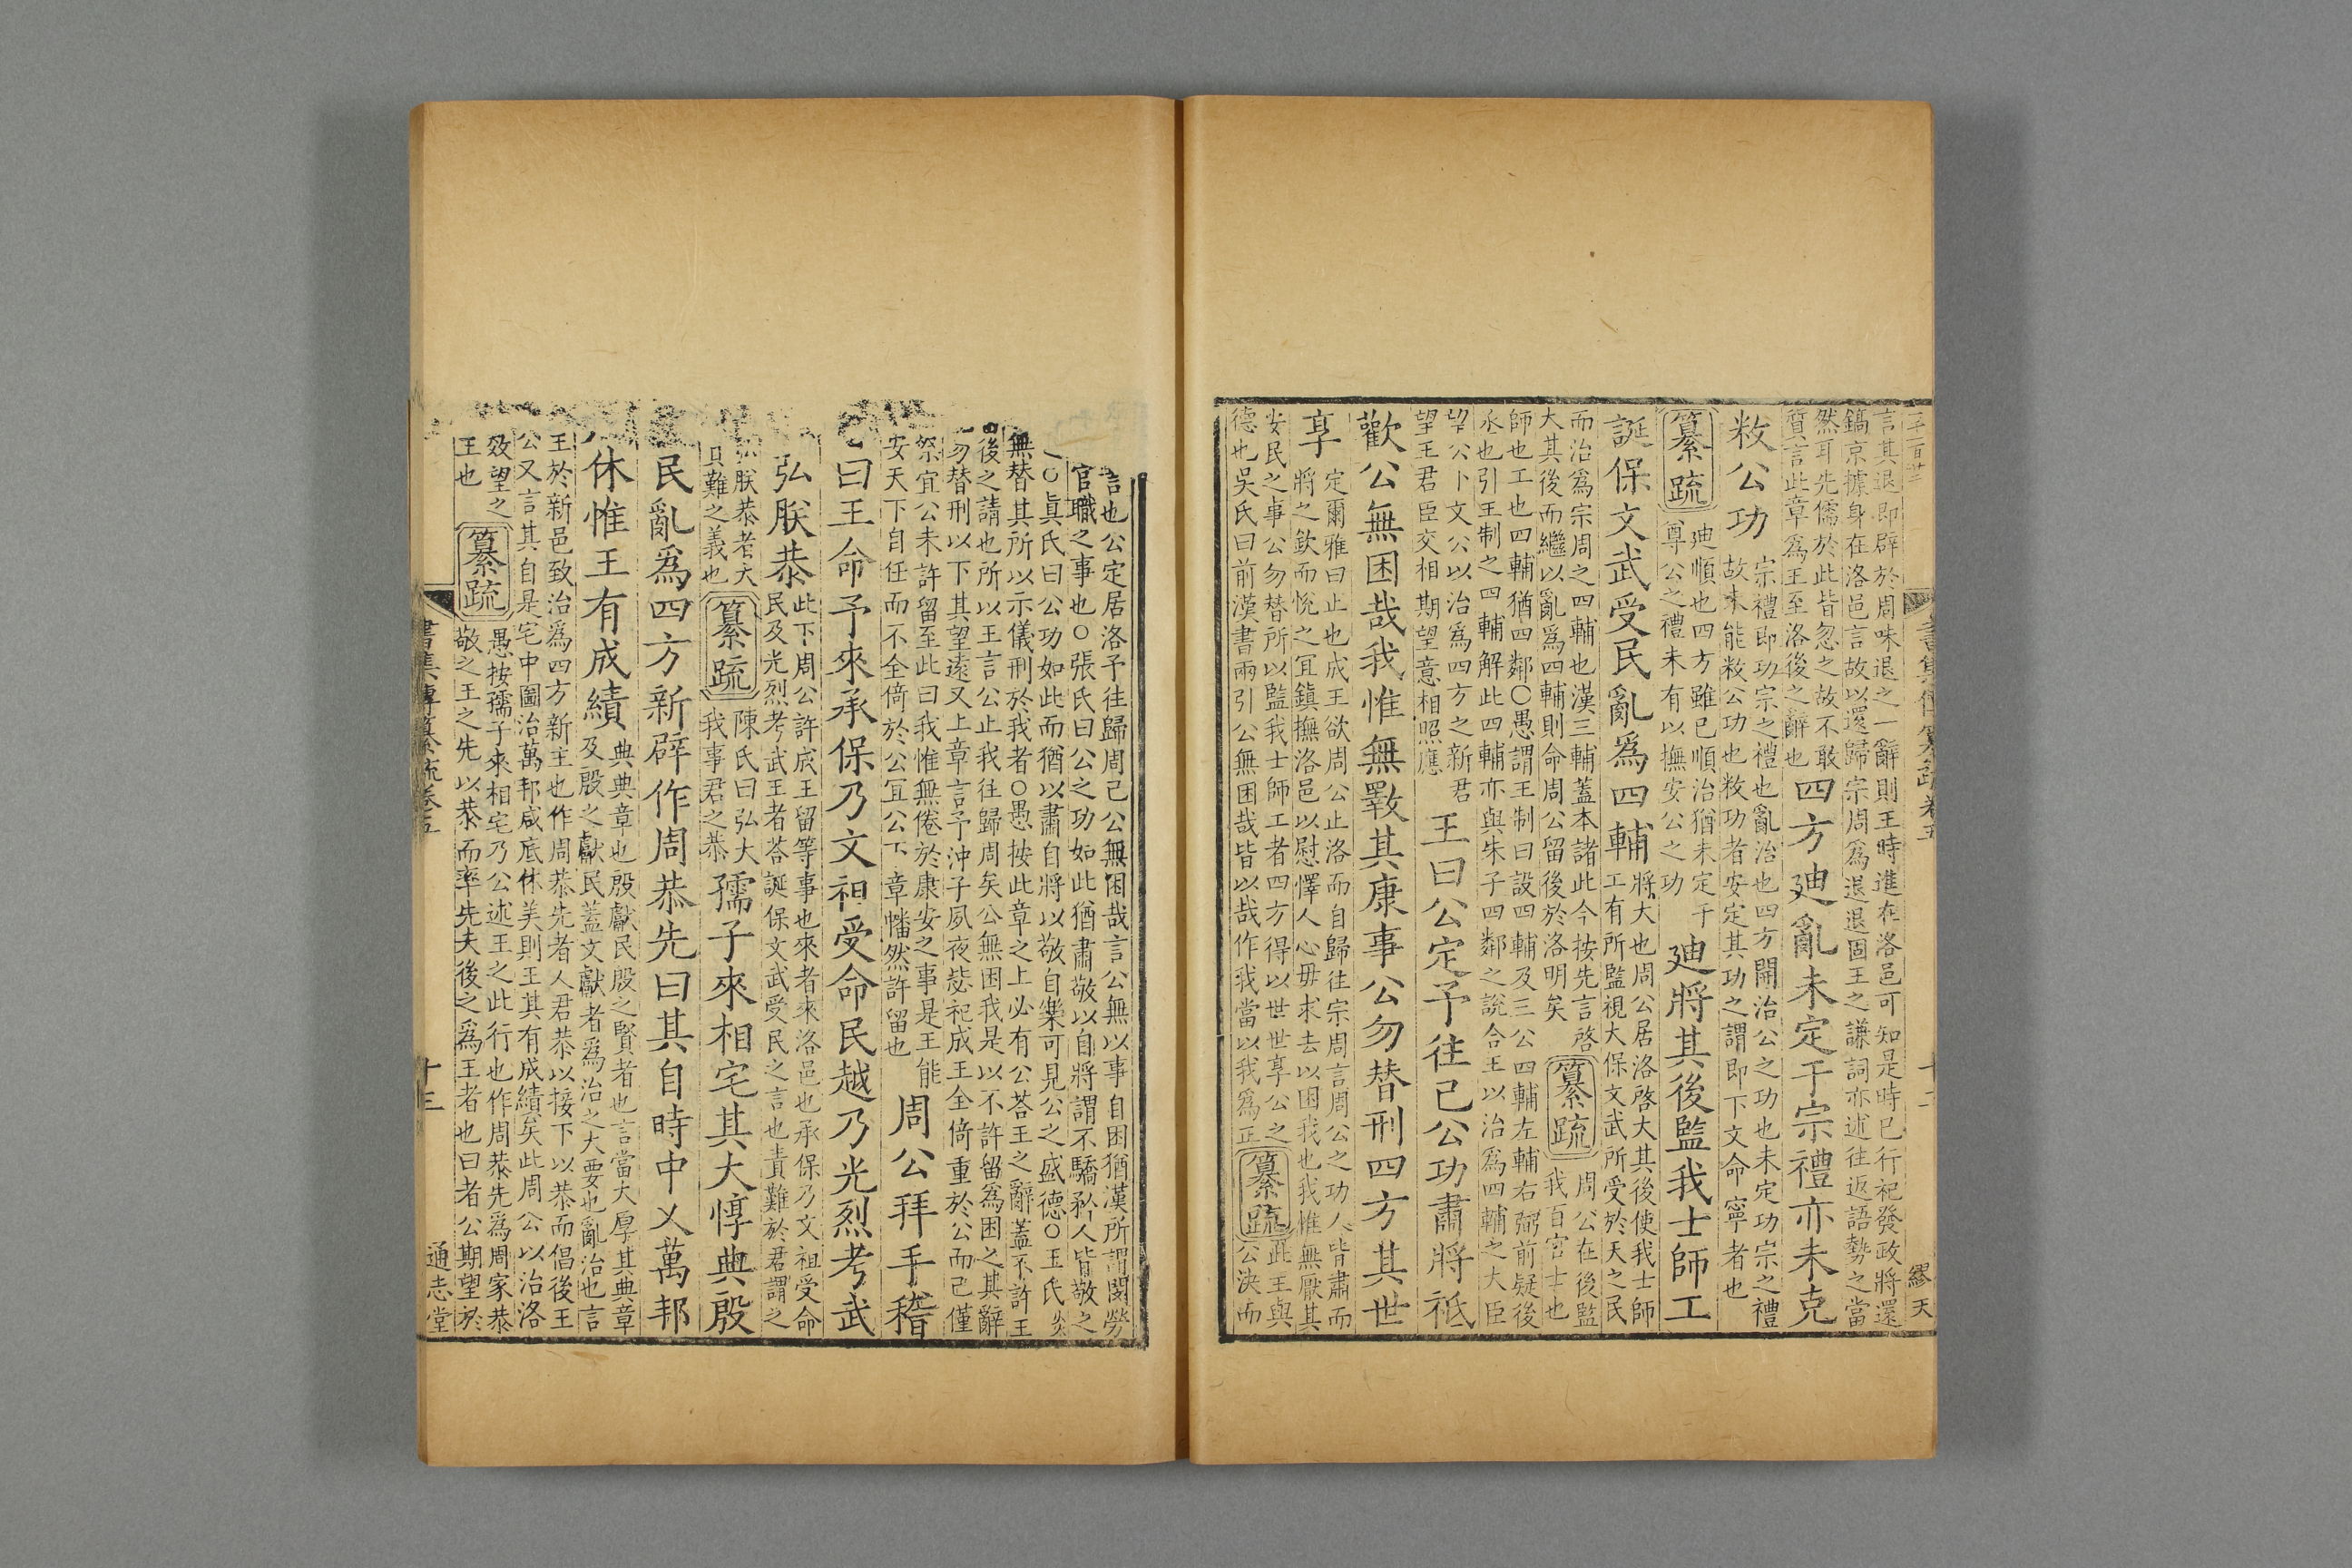 言其退即辟於周味退之一辭則王時進在洛邑可知是時已行祀發政將還
鎬京據身在洛邑言故以還歸宗周爲退退固王之謙詞亦述往返語勢之當
然耳先儒於此皆忽之故不敢
質言此章爲王至洛後之辭也
四方廸亂未定于宗禮亦未克
敉公功
宗禮即功宗之禮也亂治也四方開治公之功也未定功宗之禮
故未能敉公功也敉功者安定其功之謂即下文命寧者也
纂疏
廸順也四方雖已順治猶未定于
尊公之禮未有以撫安公之功
廸將其後監我士師工
誕保文武受民亂爲四輔
將大也周公居洛啓大其後使我士師
工有所監視大保文武所受於天之民
而治爲宗周之四輔也漢三輔蓋本諸此今按先言啓
大其後而繼以亂爲四輔則命周公留後於洛明矣
纂疏
周公在後監
我百官士也
師也工也四輔猶四鄰○愚謂王制曰設四輔及三公四輔左輔右弼前疑後
丞也引王制之四輔解此四輔亦與朱子四鄰之說合王以治爲四輔之大臣
望公卜文公以治爲四方之新君
望王君臣交相期望意相照應
王曰公定予往已公功肅將祗
歡公無困哉我惟無斁其康事公勿替刑四方其世
享
定爾雅曰止也成王欲周公止洛而自歸往宗周言周公之功人皆肅而
將之欽而恱之宜鎮撫洛邑以慰懌人心毋求去以困我也我惟無厭其
安民之事公勿替所以監我士師工者四方得以世世享公之
德也吳氏曰前漢書兩引公無困哉皆以哉作我當以我爲正
纂疏
此王與
公決而
言也公定居洛予往歸周已公無困哉言公無以事自困猶漢所謂閔勞
官職之事也○張氏曰公之功如此猶肅敬以自將謂不驕矜人皆敬之
○眞氏曰公功如此而猶以肅自將以敬自樂可見公之盛德○王氏炎
無替其所以示儀刑於我者○愚按此章之上必有公荅王之辭蓋不許王
後之請也所以王言公止我往歸周矣公無困我是以不許留爲困之其辭
勿替刑以下其望遠又上章言予沖子夙夜毖祀成王全倚重於公而已僅
祭宜公未許留至此曰我惟無倦於康安之事是王能
安天下自任而不全倚於公宜公下章幡然許留也
周公拜手稽
曰王命予來承保乃文祖受命民越乃光烈考武
弘朕恭
此下周公許成王留等事也來者來洛邑也承保乃文祖受命
民及光烈考武王者荅誕保文武受民之言也責難於君謂之
朕恭者大
其難之義也
纂疏
陳氏曰弘大
我事君之恭
孺子來相宅其大惇典殷
民亂爲四方新辟作周恭先曰其自時中乂萬邦
休惟王有成績
典典章也殷獻民殷之賢者也言當大厚其典章
及殷之獻民蓋文獻者爲治之大要也亂治也言
王於新邑致治爲四方新主也作周恭先者人君恭以接下以恭而倡後王
公又言其自是宅中圖治萬邦咸底休美則王其有成績矣此周公以治洛
效望之
王也
纂疏
愚按孺子來相宅乃公述王之此行也作周恭先爲周家恭
敬之王之先以恭而率先夫後之爲王者也曰者公期望於
書集傳纂疏卷五
十三
通志堂